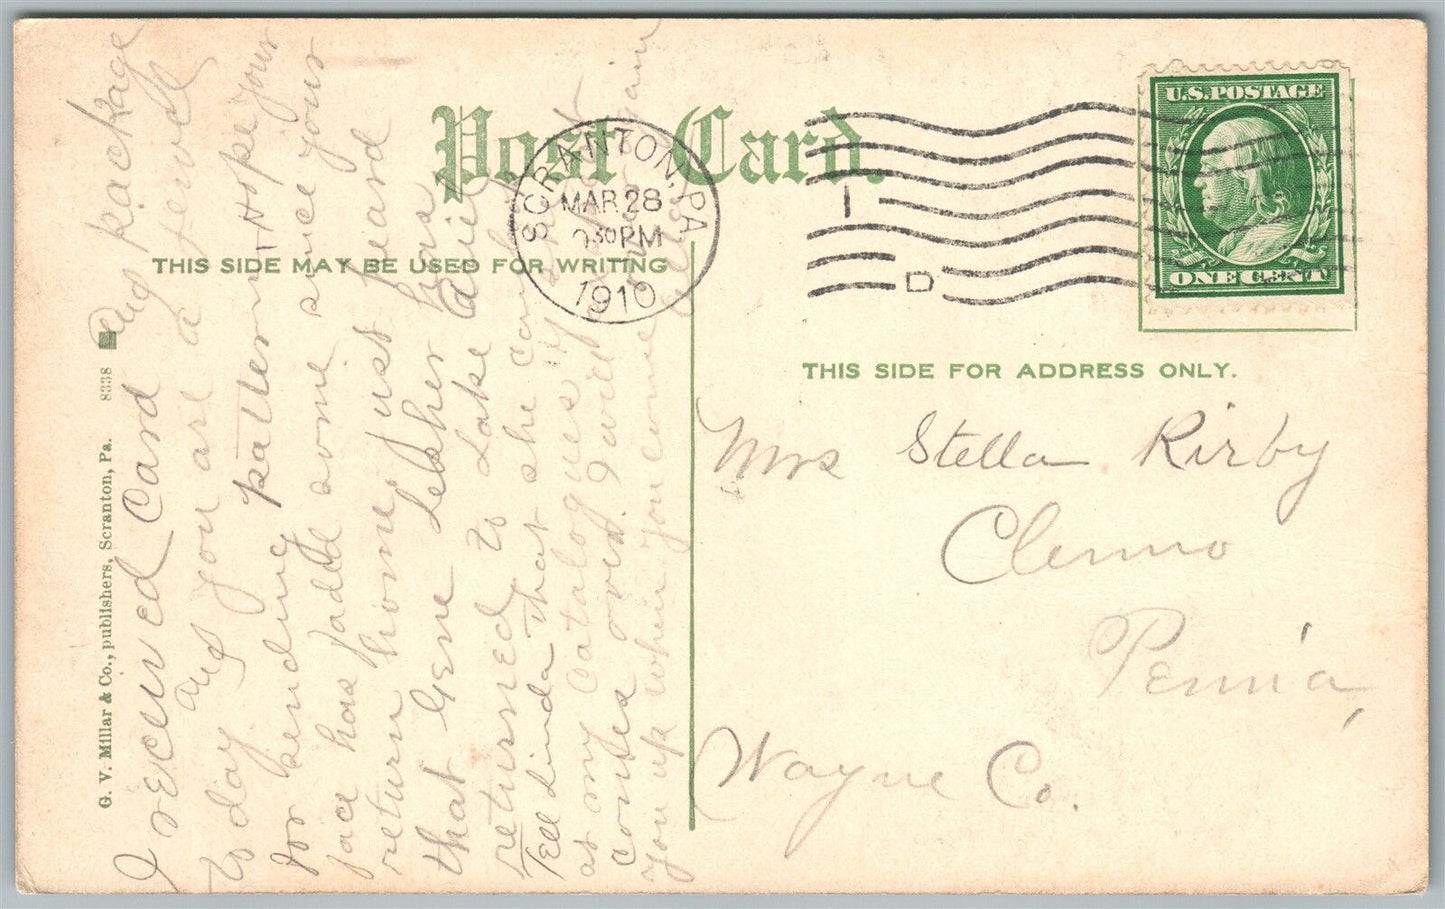 Post Card.
THIS SIDE MAY BE USED FOR WRITING
SCRANTON, PA.
MAR 28
30 PM
1910
I
D
U.S. POSTAGE
ONE CENT
THIS SIDE FOR ADDRESS ONLY.
Mrs Stella Kirby
Clemo
Penna,
Wayne Co.
G. V. Millar & Co., publishers, Scranton, Pa. 8338
I received Card and package
to day and you are a jewell
for sending pattern. Hope your
face has some since your
return home. just heard
that Gene Lesher has
returned to Lake
Tell Linda that she can
at my Catalogues
comes over. I will
you up when you come again